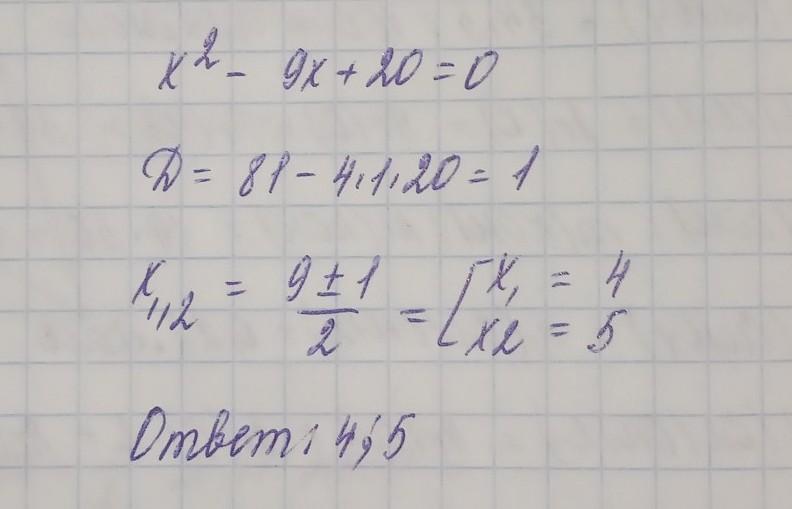 x² - 9x + 20 = 0
D = 81 - 4·1·20 = 1
x₁,₂ = (9 ± 1)/2 = [x₁ = 4
x2 = 5
Ответ: 4; 5